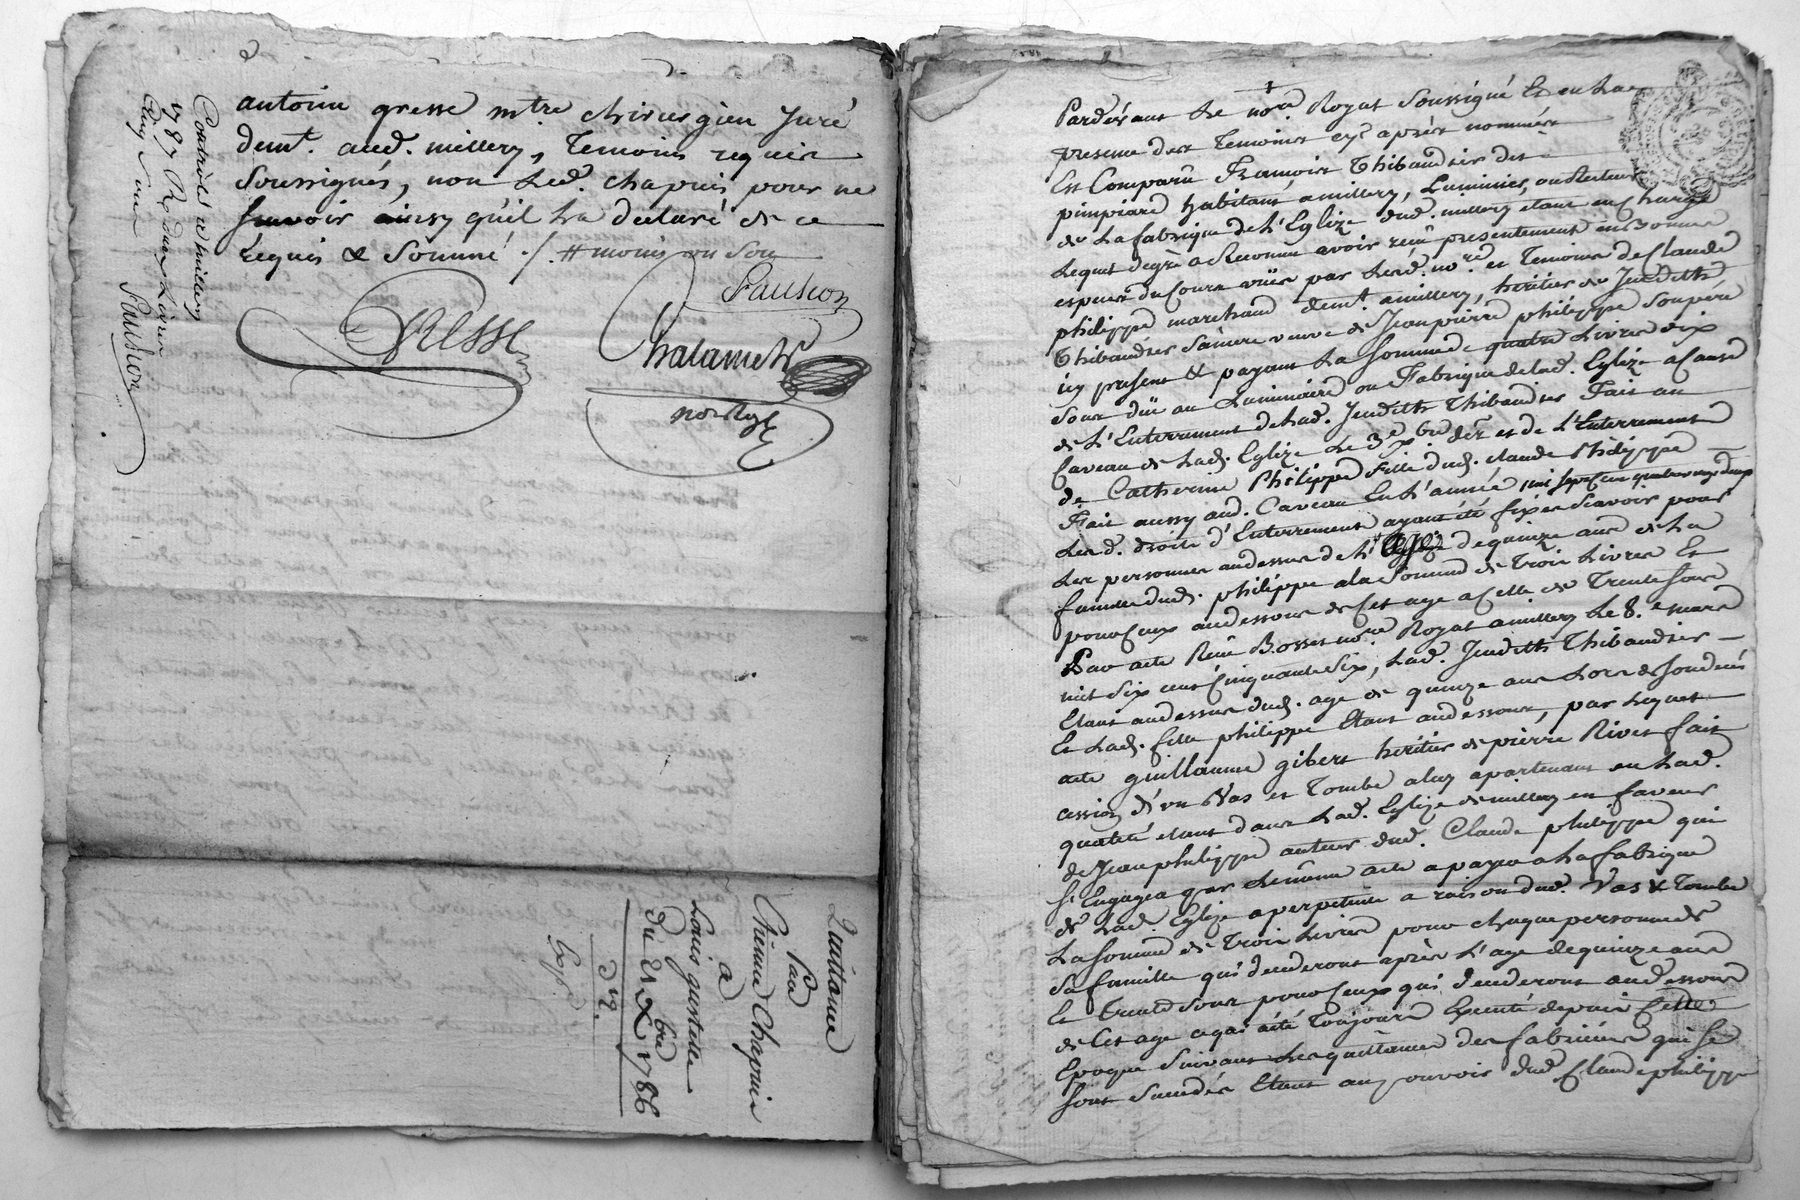 antoine gresse mtre chirurgien Juré
demt. aud. millery, Temoins requis
Soussignés, non Led. chapuis pour ne
scavoir ainsy qu'il L'a declaré de ce
Requis & Sommé ./. # moins on son
Fausion
Gresse
Chalamel
no.re Royal
Controlé a Millery
1787 R. deux Livres
Fausion
Quittance
Par
Etienne Chapuis
a
Louis
du 21 Xbre 1786
Exp.
Pardevant Le nore. Royal Soussigné Et en La
presence des Temoins cy après nommés
Est Comparu François Thibaudier dit
pimpiare habitant a millery, Luminier ou Recteur
de La fabrique de L'Eglize dud. millery etant en charge
Lequel de gré a Reconnu avoir reçu presentement en Bonnes
especes du Cours vües par Led. nore. et Temoins de Claude
philippe marchand demt. a millery, heritier de Jeudith
Thibaudier sa mere veuve de Jean pierre philippe son pere
icy present & payant La somme de quatre Livres dix
Sous düe au Luminaire ou Fabrique de lad. Eglize a Cause
de L'Enterrement de Lad. Jeudith Thibaudier Fait au
Caveau de Lad. Eglize Le 3e. Xbre der et de L'Enterrement
de Catherine Philippe Fille dud. Claude Philippe
Fait aussy aud. Caveau En L'année mil sept cent quatre vingt
Lesd. droits d'Enterrement ayant été fixés Scavoir pour
Les personnes au dessus de L'age de quinze ans de La
famille dud. philippe a la Somme de Trois Livres Et
pour Ceux au dessous de Cet age a Celle de Trente Sous
Par acte Reçu Bosset nore Royal a millery Le 8.e mars
mil Six cent Cinquante Six, Lad. Jeudith Thibaudier
Etant au dessus dud. age de quinze ans Lors de son decés
Et Lad. fille philippe Etant au dessous, par Lequel
acte guillaume gibert heritier de pierre Rivet fait
cession d'un Vas et Tombe a luy apartenant en Lad.
qualité etant dans Lad. Eglize de millery en faveur
de Jean philippe auteur dud. Claude philippe qui
s'Engagea par Le même acte a payer a La fabrique
de Lad. Eglize a perpetuité a raison dud. Vas & Tombe
La Somme de Trois Livres pour chaque personne de
Sa famille qui decederont après L'age de quinze ans
Et trente Sous pour Ceux qui decederont au dessous
de Cet age ce qui a été Toujours Executé depuis Cette
Epoque Suivant Les quittances des fabriciens qui Se
Sont Succedés Etant au pouvoir dud. Claude philippe